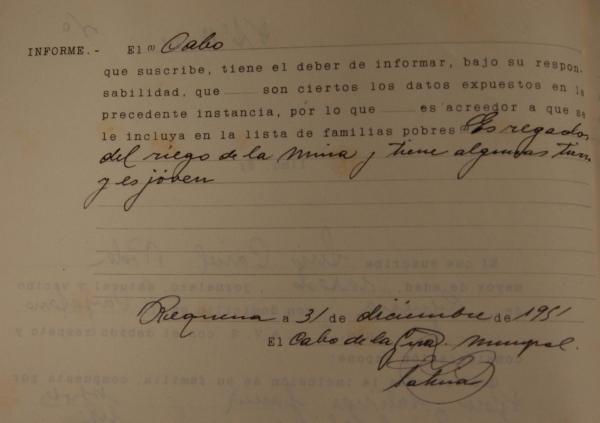 INFORME.- El (1) Cabo
que suscribe, tiene el deber de informar, bajo su respon
sabilidad, que ___ son ciertos los datos expuestos en la
precedente instancia, por lo que ___ es acreedor a que se
le incluya en la lista de familias pobres Es regador
del riego de la mina y tiene algunas
y es jóven
Requena a 31 de diciembre de 1951
El Cabo de la Municipal.